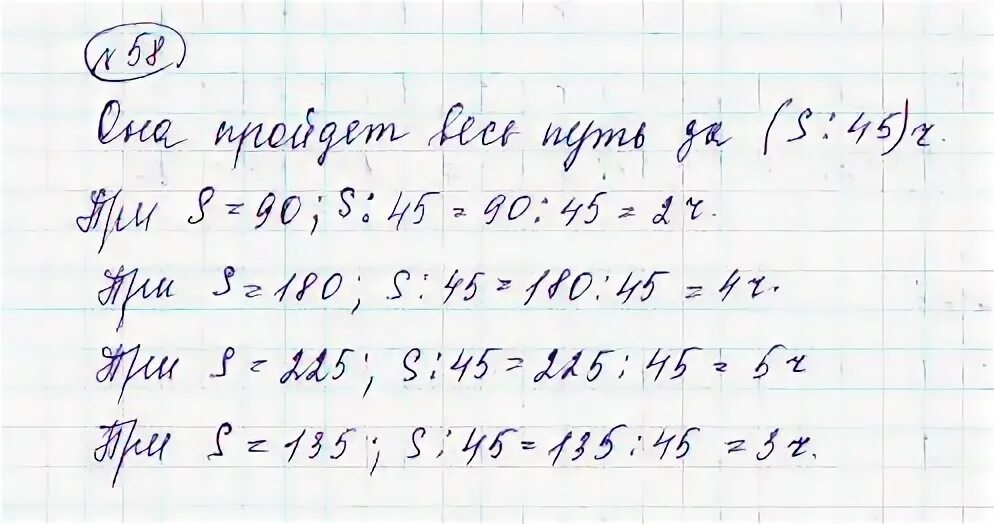 №58
Она пройдет весь путь за (S : 45) ч.
При S = 90; S : 45 = 90 : 45 = 2 ч.
При S = 180; S : 45 = 180 : 45 = 4 ч.
При S = 225; S : 45 = 225 : 45 = 5 ч
При S = 135; S : 45 = 135 : 45 = 3 ч.